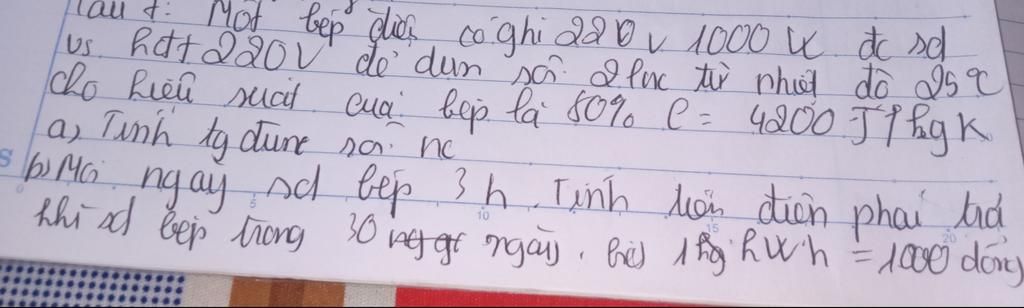 Câu 7: Một bếp điện có ghi 220V 1000W đc sd
vs hđt 220V để đun sôi 2l nc từ nhiệt độ 25°C
cho hiệu suất của bếp là 80% C = 4200 J/kgK
a, Tính tg đun sôi nc
b, Mỗi ngày sd bếp 3h. Tính tiền điện phải trả
khi sd bếp trong 30 ngày. 1 kWh = 1000 đồng